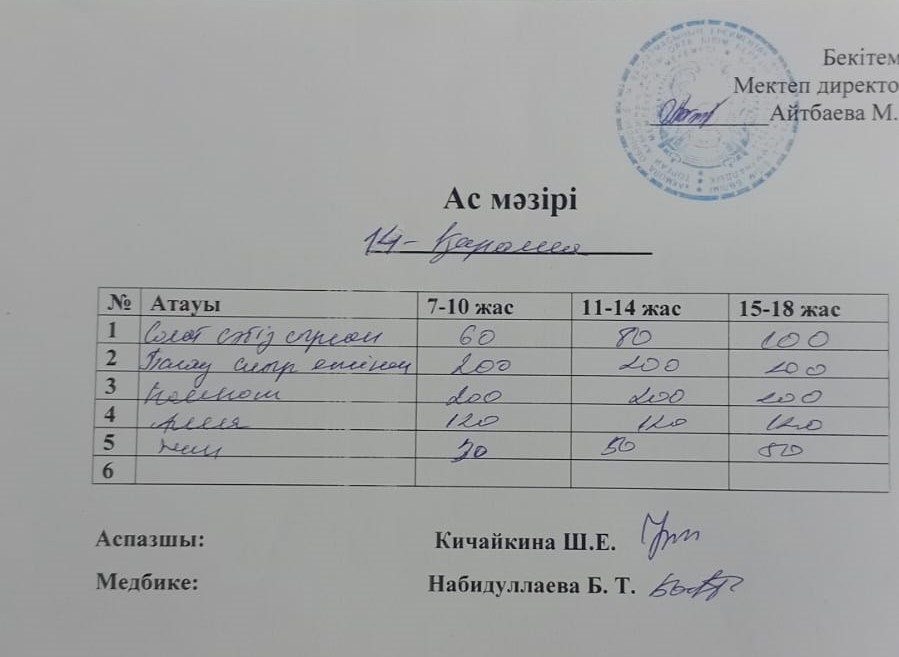 Бекітем
Мектеп директо
Айтбаева М.
Ас мәзірі
14- қараша
№ Атауы 7-10 жас 11-14 жас 15-18 жас
1 Салат сәбіз 60 80 100
2 Палау сиыр етінен 200 200 200
3 Компот 200 200 200
4 Алма 120 120 120
5 Нан 30 50 50
6
Аспазшы: Кичайкина Ш.Е.
Медбике: Набидуллаева Б. Т.